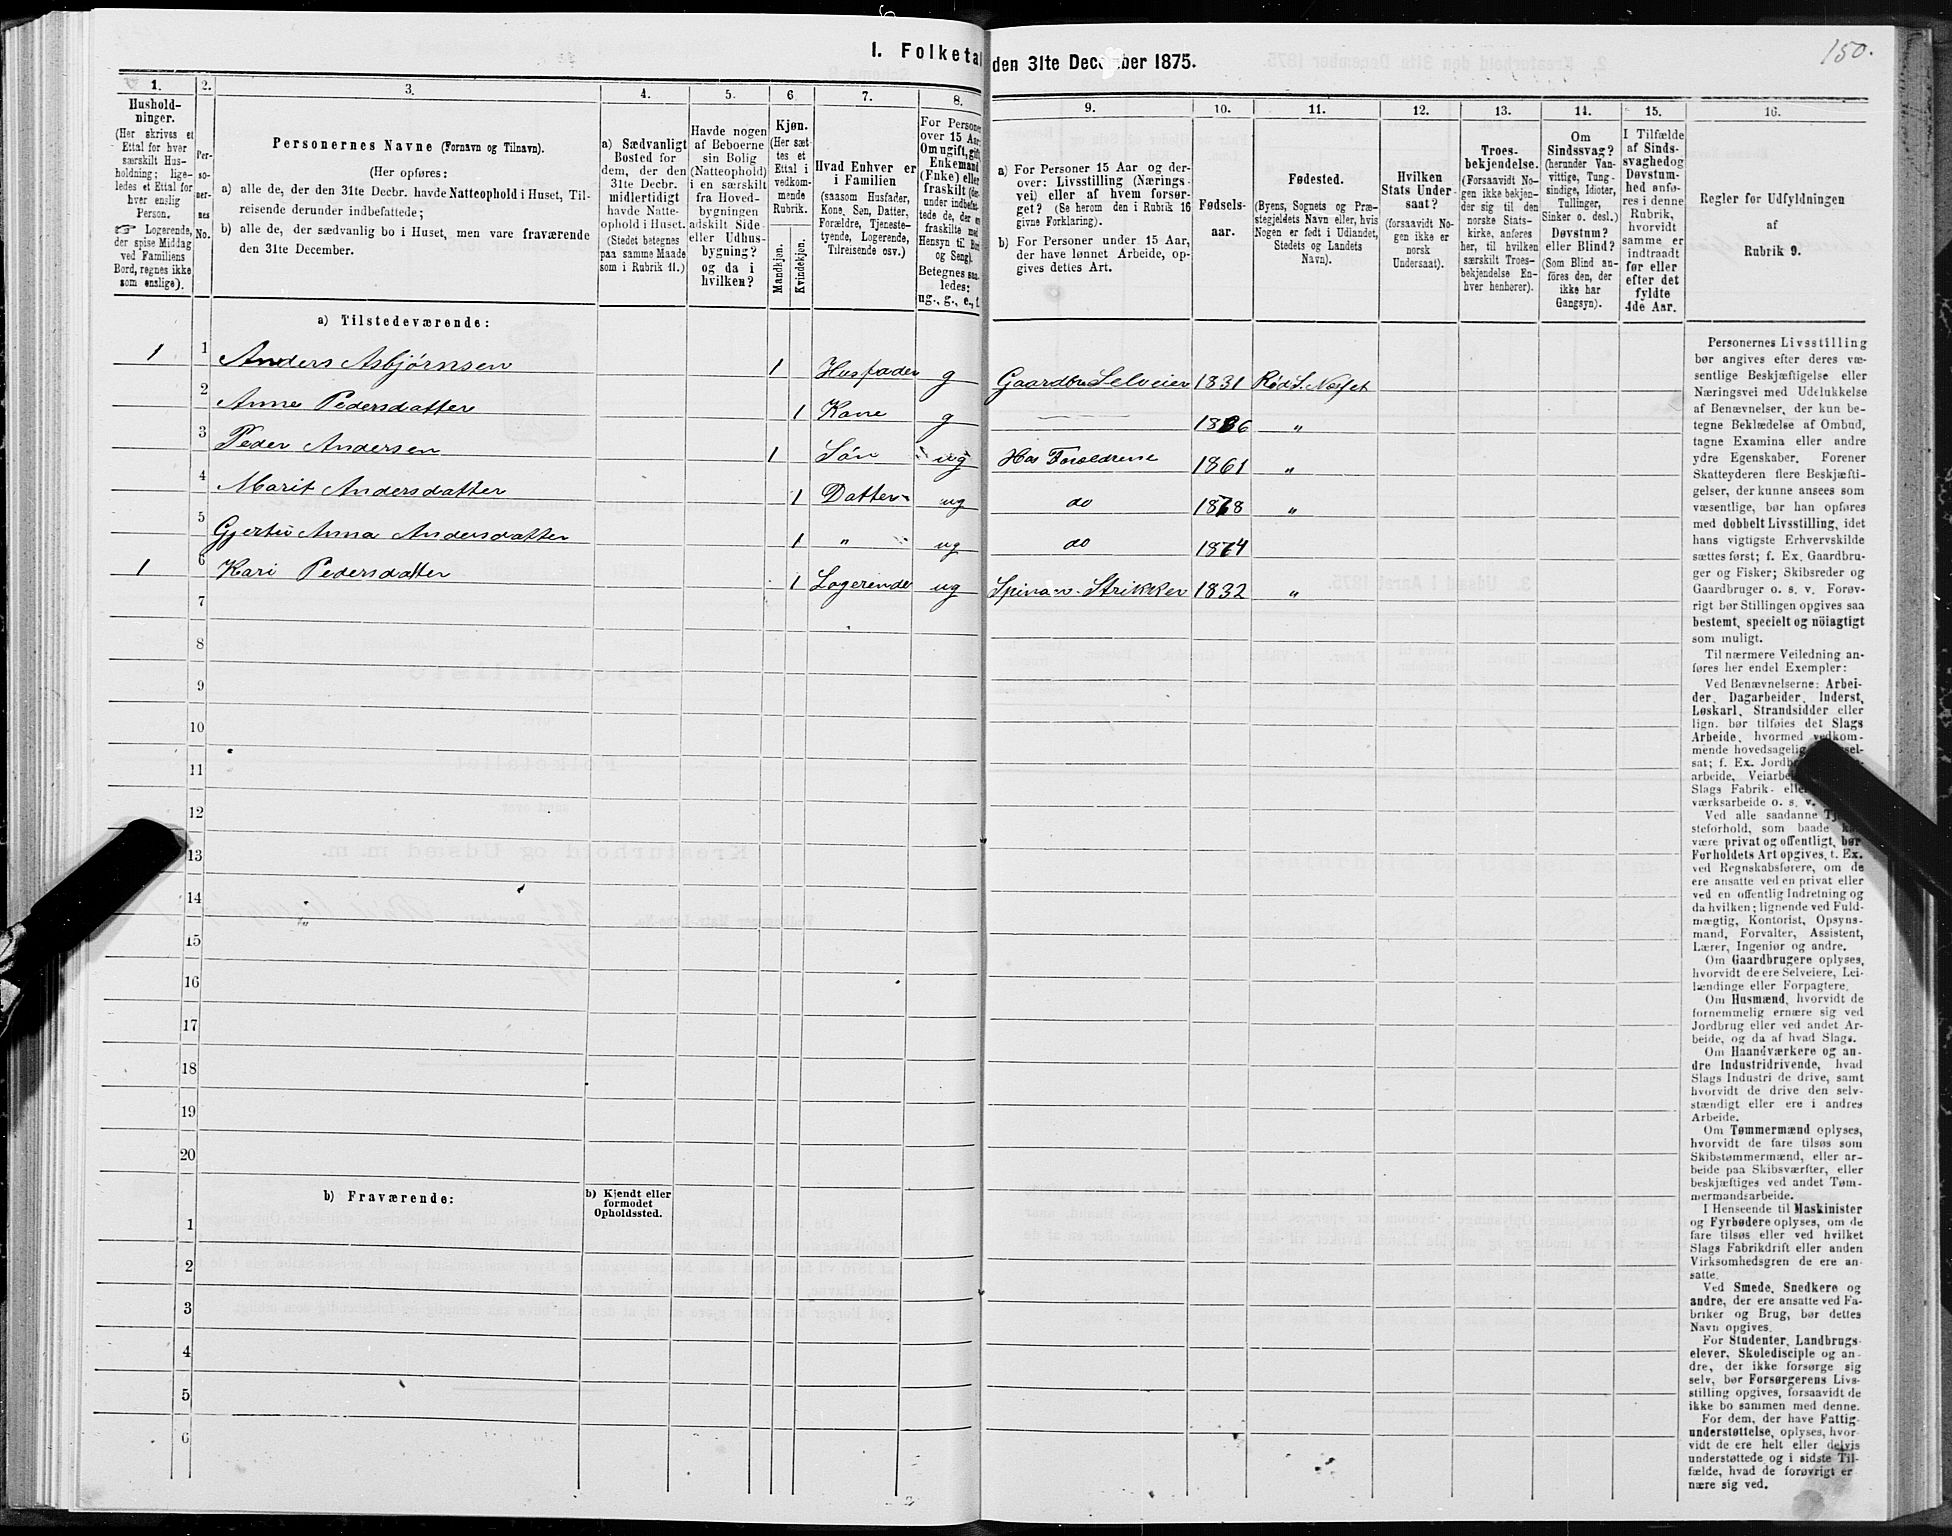 150.
I. Folketal den 31te December 1875.
1. 2. 3. 4. 5. 6 7. 8. 9. 10. 11. 12. 13. 14. 15. 16.
Hushold-
ninger.
(Her skrives et
Ettal for hver
særskilt Hus-
holdning; lige-
ledes et Ettal for
hver enslig
Person.
☞ Logerende,
der spise Middag
ved Familiens
Bord, regnes ikke
som enslige).
Per-
so-
ner-
nes
No.
Personernes Navne (Fornavn og Tilnavn).
(Her opføres:
a) alle de, der den 31te Decbr. havde Natteophold i Huset, Til-
reisende derunder indbefattede;
b) alle de, der sædvanlig bo i Huset, men vare fraværende
den 31te December.
a) Sædvanligt
Bosted for
dem, der den
31te Decbr.
midlertidigt
havde Natte-
ophold i Huset.
(Stedet betegnes
paa samme Maade
som i Rubrik 11.)
Havde nogen
af Beboerne
sin Bolig
(Natteophold)
i en særskilt
fra Hoved-
bygningen
adskilt Side-
eller Udhus-
bygning?
og da i
hvilken?
Kjøn.
(Her sæt-
tes et
Ettal i
vedkom-
mende
Rubrik.
Mandkjøn.
Kvindekjøn.
Hvad Enhver er
i Familien
(saasom Husfader,
Kone, Søn, Datter,
Forældre, Tjeneste-
tyende, Logerende,
Tilreisende osv.)
For Personer
over 15 Aar:
Om ugift, gift,
Enkemand
(Enke) eller
fraskilt (der-
under indbefat-
tede de, der ere
fraskilte med
Hensyn til Bord
og Seng).
Betegnes saa-
ledes:
ug., g., e., f.
a) For Personer 15 Aar og der-
over: Livsstilling (Nærings-
vei) eller af hvem forsør-
get? (Se herom den i Rubrik 16
givne Forklaring).
b) For Personer under 15 Aar,
der have lønnet Arbeide, op-
gives dettes Art.
Fødsels-
aar.
Fødested.
(Byens, Sognets og Præ-
stegjeldets Navn eller, hvis
Nogen er født i Udlandet,
Stedets og Landets
Navn).
Hvilken
Stats Under-
saat?
(forsaavidt No-
gen ikke er
norsk
Undersaat).
Troes-
bekjendelse.
(Forsaavidt No-
gen ikke bekjen-
der sig til den
norske Stats-
kirke, anføres
her, til hvilken
særskilt Troes-
bekjendelse En-
hver henhører).
Om
Sindssvag?
(herunder Van-
vittige, Tung-
sindige, Idioter,
Tullinger,
Sinker o. desl.)
Døvstum?
eller Blind?
(Som Blind an-
føres den, der
ikke har
Gangsyn).
I Tilfælde
af Sinds-
svaghedog
Døvstum-
hed anfø-
res i denne
Rubrik,
hvorvidt
samme er
indtraadt
før eller
efter det
fyldte
4de Aar.
Regler for Udfyldningen
af
Rubrik 9.
a) Tilstedeværende:
1 1 Anders Asbjørnsen 1 Husfader g Gaardbr. Selveier 1831 Røds. Næsset
2 Anne Pedersdatter 1 Kone g 1836 "
3 Peder Andersen 1 Søn ug Hos Forældrene 1861 "
4 Marit Andersdatter 1 Datter ug do 1868 "
5 Anna Andersdatter 1 " ug do 1874
1 6 Kari Pedersdatter 1 Logerende ug 1832 "
7
8
9
10
11
12
13
14
15
16
17
18
19
20
b) Fraværende:
b) Kjendt eller
formodet
Opholdssted.
1
2
3
4
5
6
Personernes Livsstilling
bør angives efter deres væ-
sentlige Beskjæftigelse eller
Næringsvei med Udelukkelse
af Benævnelser, der kun be-
tegne Beklædelse af Ombud,
tagne Examina eller andre
ydre Egenskaber. Forener
Skatteyderen flere Beskjæfti-
gelser, der kunne ansees som
væsentlige, bør han opføres
med dobbelt Livsstilling, idet
hans vigtigste Erhvervskilde
sættes først; f. Ex. Gaardbru-
ger og Fisker; Skibsreder og
Gaardbruger o. s. v. Forøv-
rigt bør Stillingen opgives saa
bestemt, specielt og nöiagtigt
som muligt.
Til nærmere Veiledning an-
føres her endel Exempler:
Ved Benævnelserne: Arbei-
der, Dagarbeider, Inderst,
Løskarl, Strandsidder eller
lign. bør tilføies det Slags
Arbeide, hvormed vedkom-
mende hovedsagelig
sat; f. Ex.
arbeide,
Slags Fabrik-
værksarbeide o. s. v.
Ved alle saadanne
steforhold, som baade
være privat og offentligt, bør
Forholdets Art opgives, f. Ex.
ved Regnskabsførere, om de
ere ansatte ved en privat eller
ved en offentlig Indretning og
da hvilken; lignende ved Fuld-
mægtig, Kontorist, Opsyns-
mand, Forvalter, Assistent,
Lærer, Ingeniør og andre.
Om Gaardbrugere oplyses,
hvorvidt de ere Selveiere, Lei-
lændinge eller Forpagtere.
Om Husmænd, hvorvidt de
fornemmelig ernære sig ved
Jordbrug eller ved andet Ar-
beide, og da af hvad Slags.
Om Haandværkere og an-
dre Industridrivende, hvad
Slags Industri de drive, samt
hvorvidt de drive den selv-
stændigt eller ere i andres
Arbeide.
Om Tømmermænd oplyses,
hvorvidt de fare tilsøs som
Skibstømmermænd, eller ar-
beide paa Skibsværfter, eller
beskjæftiges ved andet Tøm-
mermandsarbeide.
I Henseende til Maskinister
og Fyrbødere oplyses, om de
fare tilsøs eller ved hvilket
Slags Fabrikdrift eller anden
Virksomhedsgren de ere an-
satte.
Ved Smede, Snedkere og
andre, der ere ansatte ved Fa-
briker og Brug, bør dettes
Navn opgives.
For Studenter, Landbrugs-
elever, Skoledisciple og an-
dre, der ikke forsørge sig
selv, bør Forsørgerens Livs-
stilling opgives, forsaavidt de
ikke bo sammen med denne.
For dem, der have Fattig-
understøttelse, oplyses, hvor-
vidt de ere helt eller delvis
understøttede og i sidste Til-
fælde, hvad de forøvrigt er-
nære sig ved.